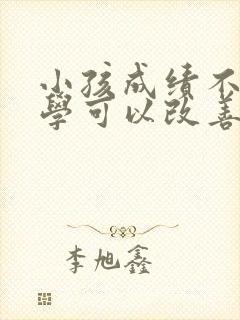 小孩成绩不
學可以改善
李旭鑫